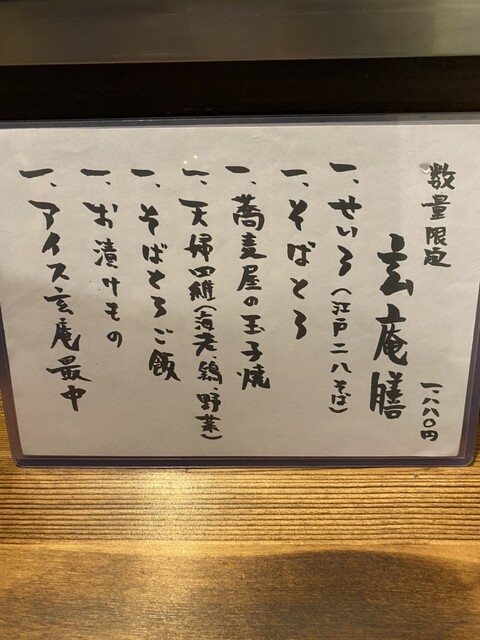 数量限定
玄庵膳
一、八八〇円
一、せいろ(江戸二八そば)
一、そばとろ
一、蕎麦屋の玉子焼
一、天婦羅(海老、鶏、野菜)
一、そばとろご飯
一、お漬けもの
一、アイス玄庵最中